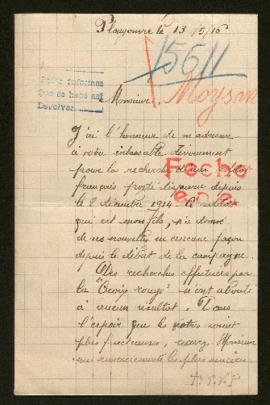 Plougonver le 13/5/16
5611
Para informes
Que se hace así
Devolver
Monsieur
Moysan
J'ai l'honneur de m'adresser
à votre inlassable dévouement
pour la recherche d'un
français porté disparu depuis
le 2 décembre 1914
Fecha
qui est mon fils, n'a donné
de nouvelles en aucune façon
depuis le début de la campagne.
Des recherches effectuées par
la "Croix rouge" n'ont abouti
à aucun résultat. Dans
l'espoir que les votres soient
plus fructueuses, Monsieur
mes remerciements les plus sincères